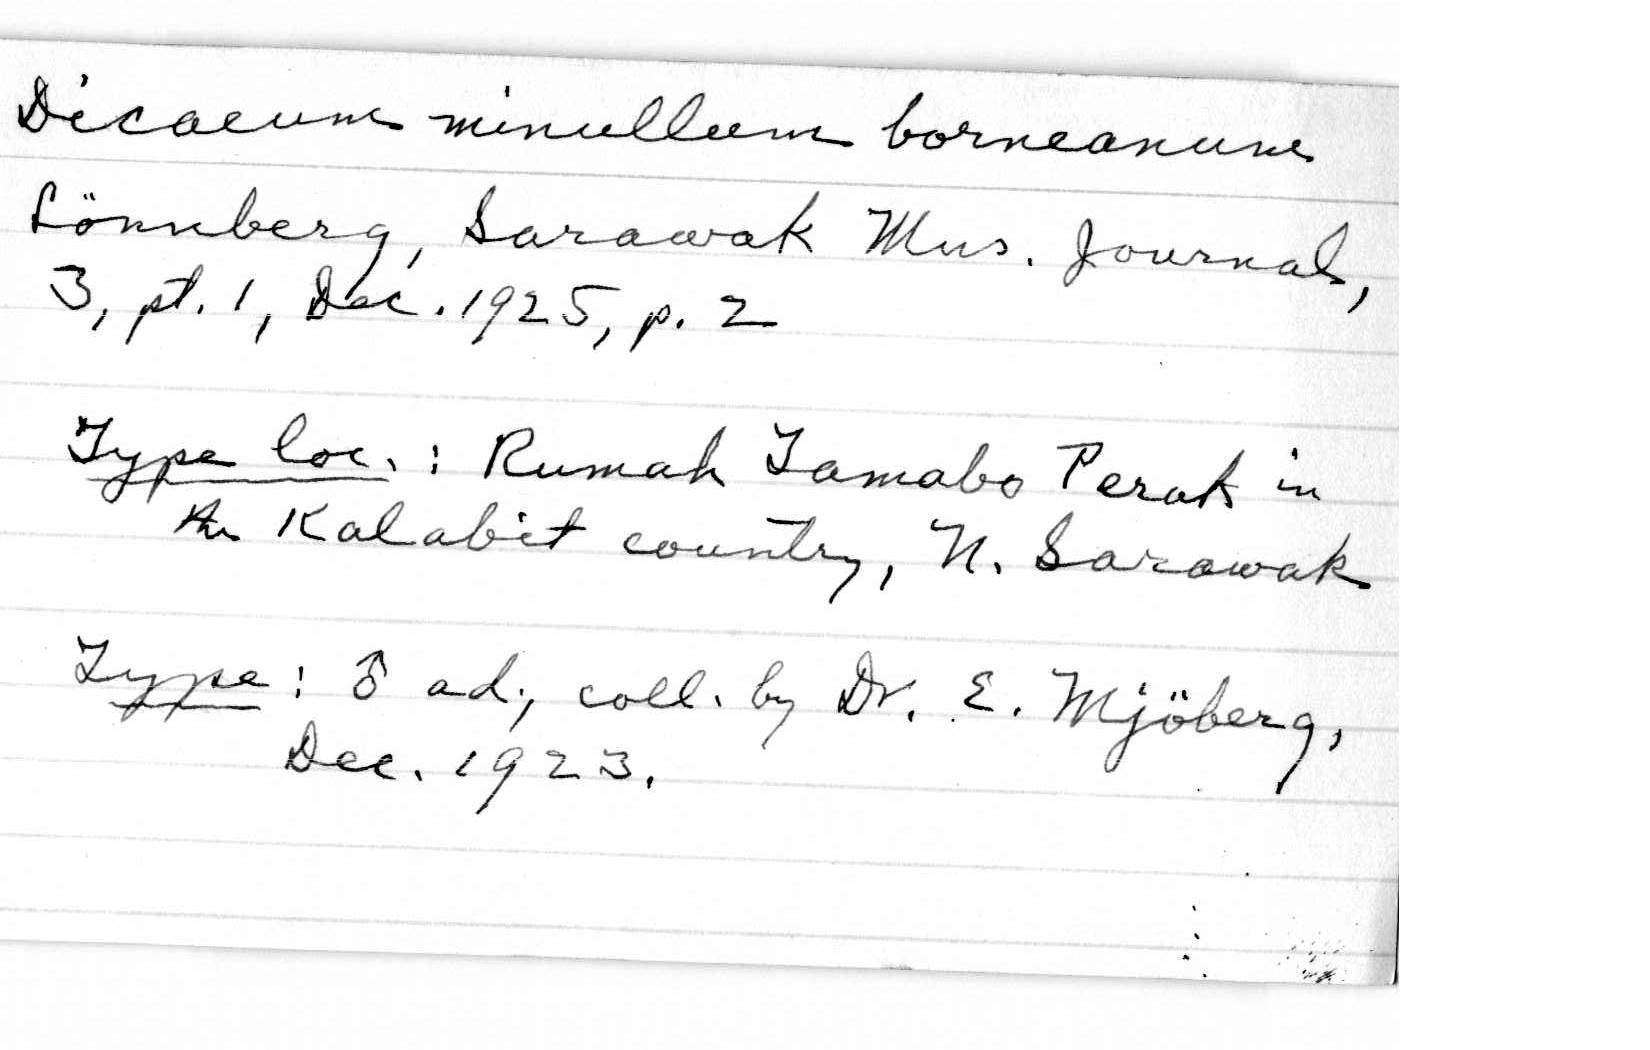 Dicaeum minullum borneanum
Lönnberg, Sarawak Mus. Journal,
3, pt. 1, Dec. 1925, p. 2
Type loc. : Rumah Tamabo Perak in
the Kalabit country, N. Sarawak
Type : ♂ ad., coll. by Dr. E. Mjöberg,
Dec. 1923.